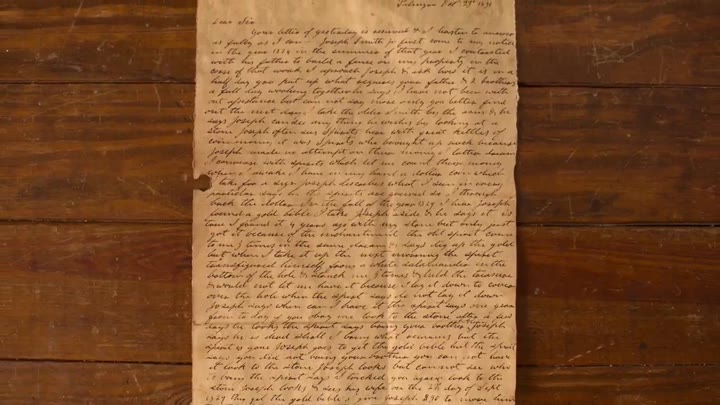 Palmyra Oct 23d 1830
Dear Sir
Your letter of yesterday is received & I hasten to answer
as fully as I can Joseph Smith Jr first come to my notice
in the year 1824 in the summer of that year I contracted
with his father to build a fence on my property in the
corse of that work I aproach Joseph & ask how it is in a
half day you put up what requires your father & 2 brothers
a full day working together he says I have not been with
out assistance but can not say more only you better find
out the next day I take the older Smith by the arm & he
says Joseph can see any thing he wishes by looking at a
stone Joseph often sees Spirits here with great kettles of
coin money it was Spirits who brought up rock because
Joseph made no attempt on their money I latter dream
I converse with spirits which let me count their money
when I awake I have in my hand a dollar coin which
I take for a sign Joseph describes what I seen in every
particular says he the spirits are greived so I through
back the dollar In the fall of the year 1827 I hear Joseph
found a gold bible I take Joseph aside & he says it is
true I found it 4 years ago with my stone but only just
got it because of the enchantment the old spirit come
to me 3 times in the same dream & says dig up the gold
but when I take it up the next morning the spirit
transfigured himself from a white salamander in the
bottom of the hole & struck me 3 times & held the treasure
& would not let me have it because I lay it down to cover
over the hole when the spirit says do not lay it down
Joseph says when can I have it the spirit says one year
from to day if you obay me look to the stone after a few
days he looks the spirit says bring your brother Joseph
says he is dead shall I bring what remains but the
spirit is gone Joseph goes to get the gold bible but the spirit
says you did not bring your brother you can not have
it look to the stone Joseph looks but can not see who
to bring the spirit says I tricked you again look to the
stone Joseph looks & sees his wife on the 22d day of Sept
1827 they get the gold bible I give Joseph $50 to move him